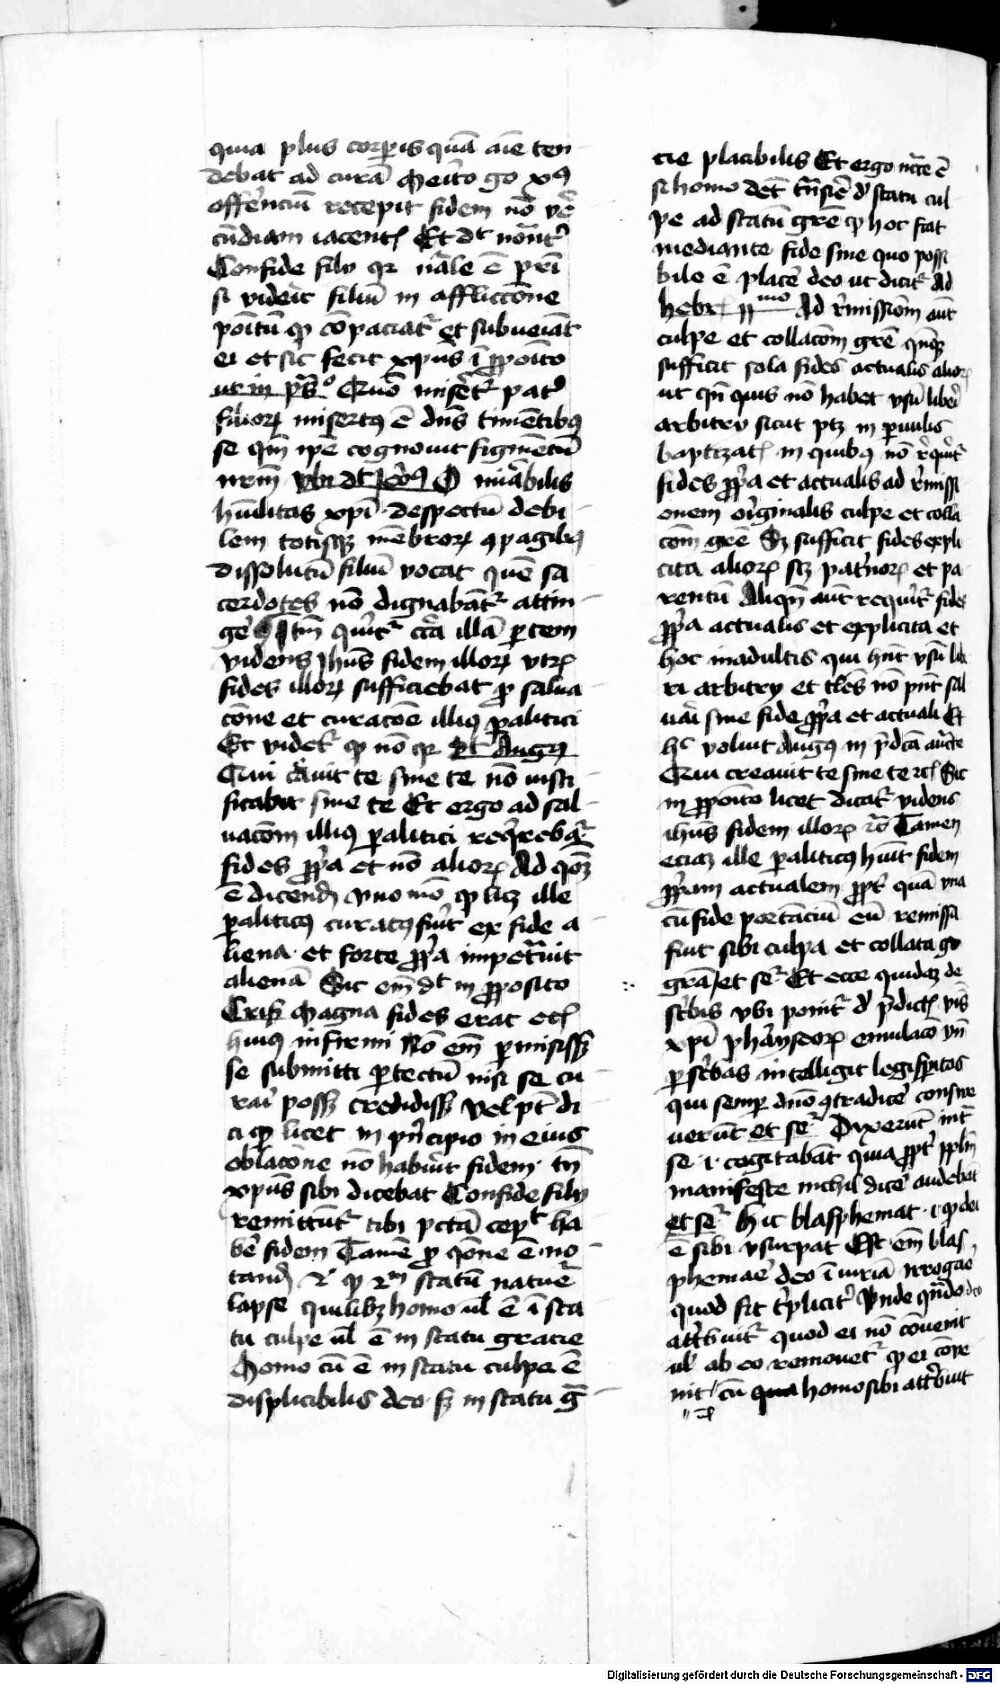 quia plus corꝑis quā aīe ten
debat ad curā Meito go xp̄s
offerenciū recepit fidem nō ve
cūdiam iacent᷒ Et dt notāt᷒
Confide fili qr nāle ē pri
si viderit filiū in afflicc̄one
poitū ꝙ cōpaciat᷒ et subueiāt
ei et sic fecit xp̄us ī ꝓpoito
ut in ps° Quō miseret᷒ pat᷒
filioꝝ misertꝰ ē dn̄s timētibꝰ
se qm̄ ip̄e cognouit figmētū
nr̄m vbi dt Jeroꝰ O mirabilis
hūilitas xp̄i despectū debi
lem totisqꝫ mēbroꝝ ꝯpagibꝰ
dissolutū filiū vocat quē sa
cerdotes nō dignabāt᷒ attin
gē Itm̄ querit᷒ cc̄a illā ꝑtem
videns Jhūs fidem illoꝝ vtrū
fides illoꝝ sufficiebat ꝓ salua
cōne et curacōe illiꝰ ꝑalitici
Et videt᷒ ꝙ nō qr dt Augꝰ
Qui creauit te sine te nō iusti
ficabit sine te Et ergo ad sal
uacōm illiꝰ ꝑalitici reqrebat᷒
fides ꝓp̄a et nō alioꝝ Ad qōꝫ
ē dicend᷒ vno mō ꝙ licꝫ ille
ꝑaliticꝰ curatꝰ fuīt ex fide a
liena et forte ꝓp̄a impet̄uit
alienā Sic em̄ dt in ꝓposito
Cris᷒ Magna fides erat etc᷒
huiꝰ infirmi Nō em̄ ꝑmisissꝫ
se submitti ꝑ tectū nisi se cu
rari possꝫ credidissꝫ Vel pt̄ di
ci ꝙ licet in pn̄cipio in eius
oblacōne nō habuit fidem tn̄
xp̄us sibi dicebat Confide fili
remittūt᷒ tibi pctā cepit ha
bē fidem Tamē ꝓ qōne ē no
tand᷒ ꝙ scd̄m statū nature
lapse quilibꝫ homo ul᷒ ē ī sta
tu culpe ul᷒ ē in statu gracie
Homo cū ē in statu culpe ē
displicibilis deo sꝫ in statu grā
cie placibilis Et ergo necc̄e ē
si homo debet trāsire de statu cul
pe ad statū grē ꝙ hoc fiat
mediante fide sine quo possi
bile ē placē deo ut dicit᷒ Ad
hebr᷒ xj mo Ad remissiōm aūt
culpe et collacōm grē qn̄qꝫ
sufficit sola fides actualis alioꝝ
ut qn̄ quis nō habet vsū liberi
arbitry sicut ptꝫ in ꝑuulis
baptizat᷒ in quibꝰ nō reqrit᷒
fides ꝓp̄a et actualis ad remissi
onem originalis culpe et colla
cōm grē Sꝫ sufficit fides expli
cita alioꝝ scꝫ patrinoꝝ et pa
rentū Aliqn̄ aūt requirit᷒ fides
ꝓp̄a actualis et explicita et
hoc in adultis qui hn̄t vsū libe
ri arbitry et tales nō pn̄t sal
uari sine fide ꝓp̄a et actuali Et
hoc voluit Augꝰ in p̄dc̄a auctē
Qui creauit te sine te etc᷒ Sic
in ꝓpoito licet dicat᷒ videns
ihūs fidem illoꝝ etc Tamen
eciaꝫ ille ꝑaliticꝰ huīt fidem
ꝓpriam actualem ꝓpt᷒ quā vna
cū fide portāciū eū remissa
fuit sibi culpa et collata grā
et se᷒ Et ecce quidaꝫ de
scribis vbi ponit᷒ de p̄dict᷒
xp̄i phariseoꝝ emulaco vn̄
ꝑ scribas intelligit legisꝑitos
qui semper dn̄o ꝯtradicē consue
uerūt et se᷒ Dixerūt intra
se .i. cogitabāt quia ꝓpt᷒ pplm̄
manifeste nichil dicē audebāt
et se᷒ Hic blasphemat .i. ꝙ dei
ē sibi vsurpat Est em̄ blas
phemare deo īiuriā irrogare
quod fit tr̄pliciter Vnde qn̄do deo
attribuit᷒ quod ei nō cōuenit
ul᷒ ab eo remouet᷒ ꝙ ei cōue
nit cū homo sibi attribuit
ul᷒
Digitalisierung gefördert durch die Deutsche Forschungsgemeinschaft - DFG